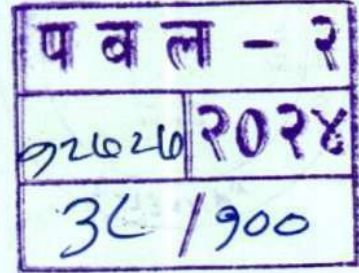 प व ल - २
१२७२७ २०२४
३८ / १००